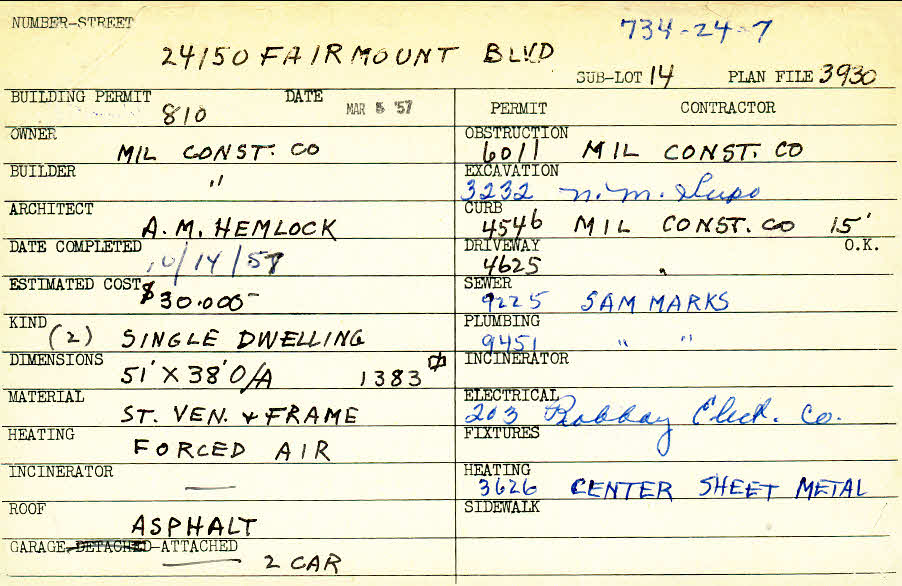 NUMBER-STREET
734-24-7
24150 FAIRMOUNT BLVD
SUB-LOT 14 PLAN FILE 3930
BUILDING PERMIT 810 DATE MAR 5 '57
PERMIT CONTRACTOR
OWNER MIL CONST. CO
OBSTRUCTION 6011 MIL CONST. CO
BUILDER "
EXCAVATION 3232 N. M.
ARCHITECT A. M. HEMLOCK
CURB 4546 MIL CONST. CO 15'
DATE COMPLETED 10/14/57
DRIVEWAY 4625 " O.K.
ESTIMATED COST $30.000-
SEWER 9225 SAM MARKS
KIND (2) SINGLE DWELLING
PLUMBING 9451 " "
DIMENSIONS 51' X 38' O/A 1383
INCINERATOR
MATERIAL ST. VEN. + FRAME
ELECTRICAL 203 Elect. Co.
HEATING FORCED AIR
FIXTURES
INCINERATOR —
HEATING 3626 CENTER SHEET METAL
ROOF ASPHALT
SIDEWALK
GARAGE-DETACHED-ATTACHED 2 CAR